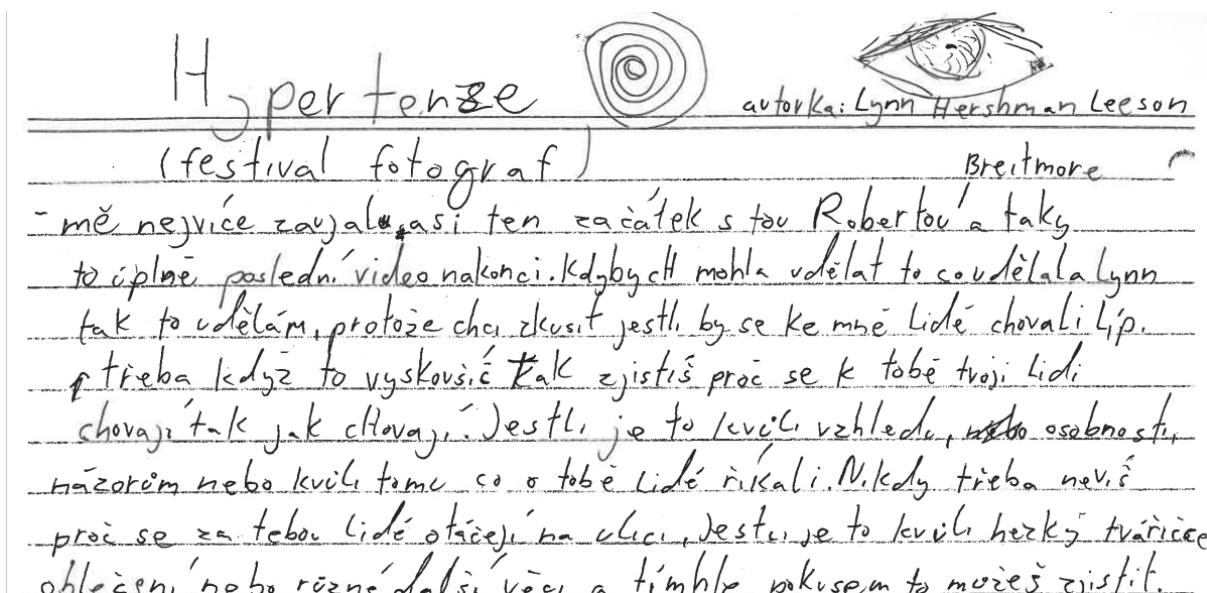 Hypertenze
autorka: Lynn Hershman Leeson
(festival fotograf)
Breitmore
- mě nejvíce zaujal asi ten začátek s tou Robertou a taky
to úplně poslední video nakonci. Kdybych mohla udělat to co udělala Lynn
tak to udělám, protože chci zkusit jestli by se ke mně lidé chovali líp.
třeba když to vyskoušíč tak zjistíš proč se k tobě tvoji lidi
chovají tak jak chovají. Jestli je to kvůli vzhledu, osobnosti,
názorům nebo kvůli tomu co o tobě lidé říkali. Nikdy třeba nevíš
proč se za tebou lidé otáčejí na ulici, Jestli je to kvůli hezký tvářičce
oblečení nebo různé další věci a tímhle pokusem to možeš zjistit.